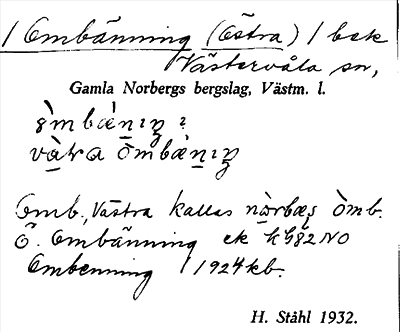 / Ombänning (Östra) / bek
Västervåla sn,
Gamla Norbergs bergslag, Västm. l.
òmbä̀nıŋ ?
vàtra òmbä̀nıŋ
Omb., Västra kallas nòrbæş òmb.
Ö. Ombänning ek kG82NO
Ombenning 1924 kb.
H. Ståhl 1932.